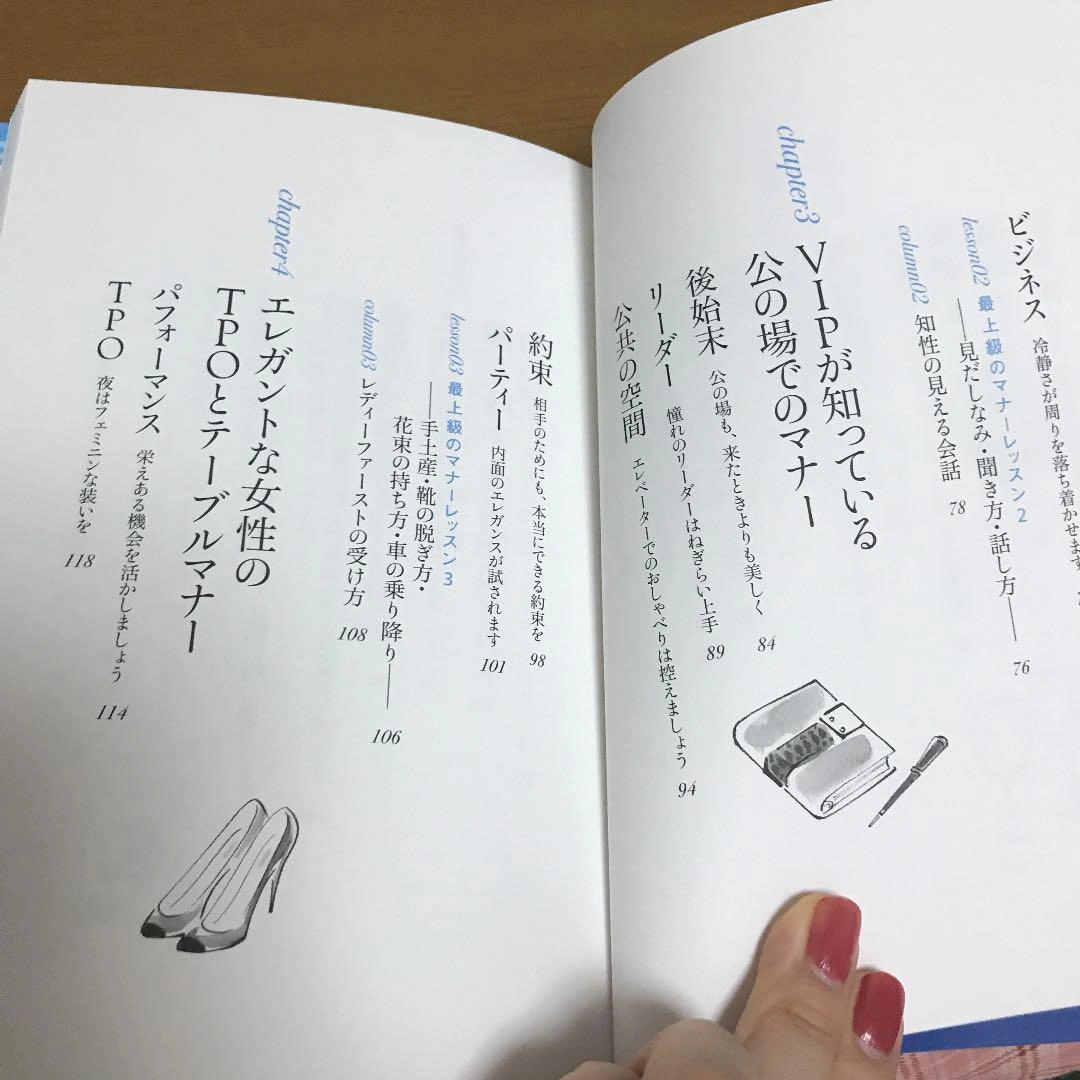 ビジネス 冷静さが周りを落ち着かせます
lesson02 最上級のマナーレッスン2
――見だしなみ・聞き方・話し方―― 76
column02 知性の見える会話 78
chapter3 VIPが知っている
公の場でのマナー
後始末 公の場も、来たときよりも美しく 84
リーダー 憧れのリーダーはねぎらい上手 89
公共の空間 エレベーターでのおしゃべりは控えましょう 94
約束 相手のためにも、本当にできる約束を 98
パーティー 内面のエレガンスが試されます 101
lesson03 最上級のマナーレッスン3
――手土産・靴の脱ぎ方・
花束の持ち方・車の乗り降り―― 106
column03 レディーファーストの受け方 108
chapter4 エレガントな女性の
TPOとテーブルマナー
パフォーマンス 栄えある機会を活かしましょう 114
TPO 夜はフェミニンな装いを 118